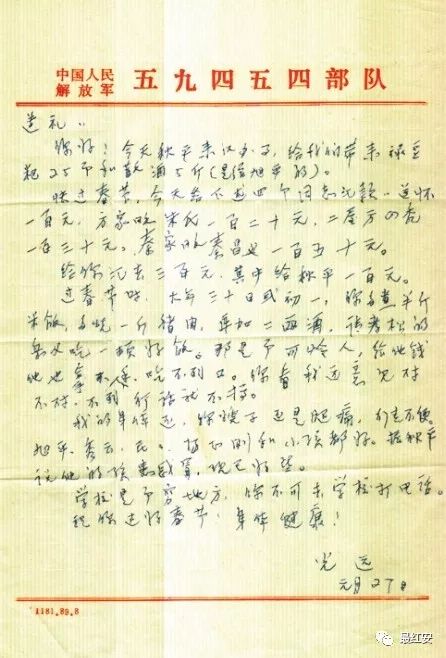 中国人民
解放军 五九四五四部队
道礼:
你好!今天秋平来汉办事,给我们带来绿豆
粑25斤和散酒5斤(是给旭平的)。
快过春节,今天给下述四个同志汇款:道怀
一百元,方家的朱氏一百二十元,二屋方四秀
一百三十元,秦家的秦昌 一百五十元。
给你汇去三百元,其中给秋平一百元。
过春节时,大年三十日或初一,你多煮半斤
米饭,多烧一斤猪肉,再加二两酒,请老松的
岳父吃一顿好饭。那是个可怜人,给他钱
他也拿不住,吃不到口。你看我这意见对
不对,不对你说就不搞。
我的身体还 ,你嫂子还是腿痛,行走不便。
旭平、秀云、 、 和小孩都好。据秋平
说他的孩子 ,现已好些。
学校是个穷地方,你不可去学校打电话。
祝你过好春节,身体健康!
光远
元月27日
1181.89.8
最红安